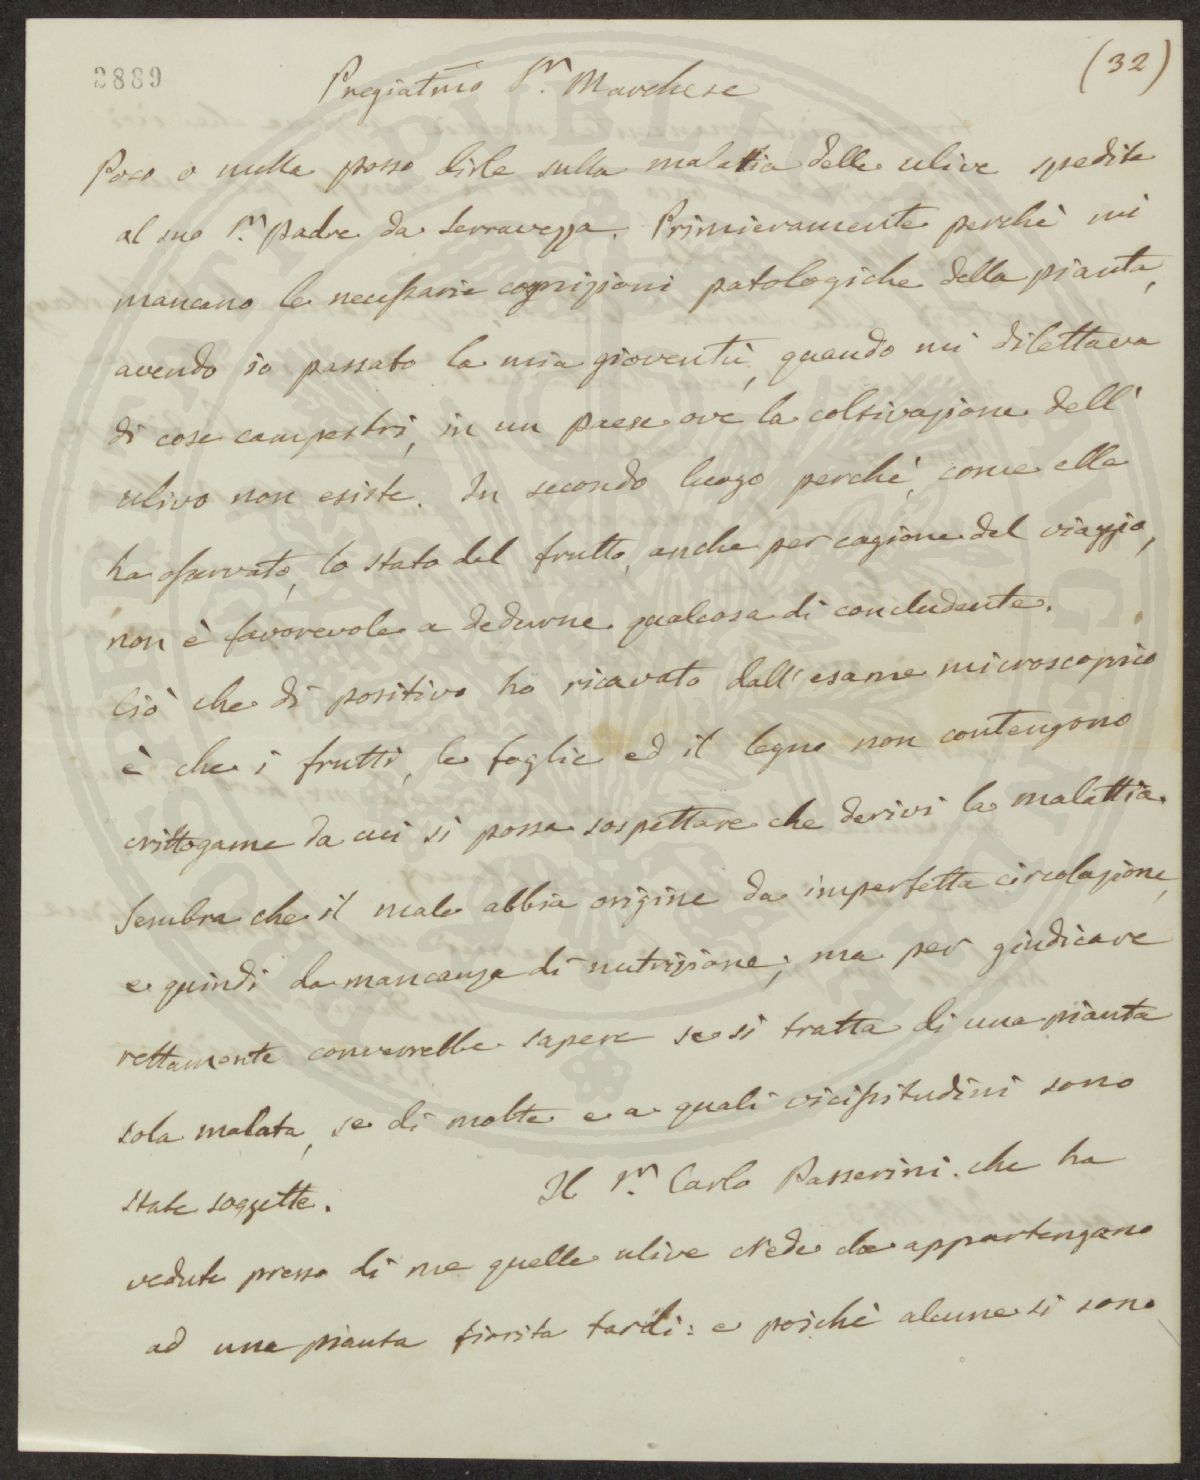 2889
(32)
Pregiatmo Sr. Marchese
Poco o nulla posso dirle sulla malattia delle ulive spedite
al suo Sr. padre da Serravezza. Primieramente perchè mi
mancano le necessarie cognizioni patologiche della pianta,
avendo io passato la mia gioventù, quando mi dilettava
di cose campestri, in un paese ove la coltivazione dell'
ulivo non esiste. In secondo luogo perchè, come ella
ha osservato, lo stato del frutto, anche per cagione del viaggio,
non è favorevole a dedurne qualcosa di concludente.
Ciò che di positivo ho ricavato dall'esame microscopico
è che i frutti, le foglie ed il legno non contengono
crittogame da cui si possa sospettare che derivi la malattia.
Sembra che il male abbia origine da imperfetta circolazione,
e quindi da mancanza di nutrizione; ma per giudicare
rettamente converrebbe sapere se si tratta di una pianta
sola malata, se di molte e a quali vicissitudini sono
state soggette. Il Sr. Carlo Passerini che ha
vedute presso di me quelle ulive crede che appartengano
ad una pianta fiorita tardi: e poichè alcune si sono